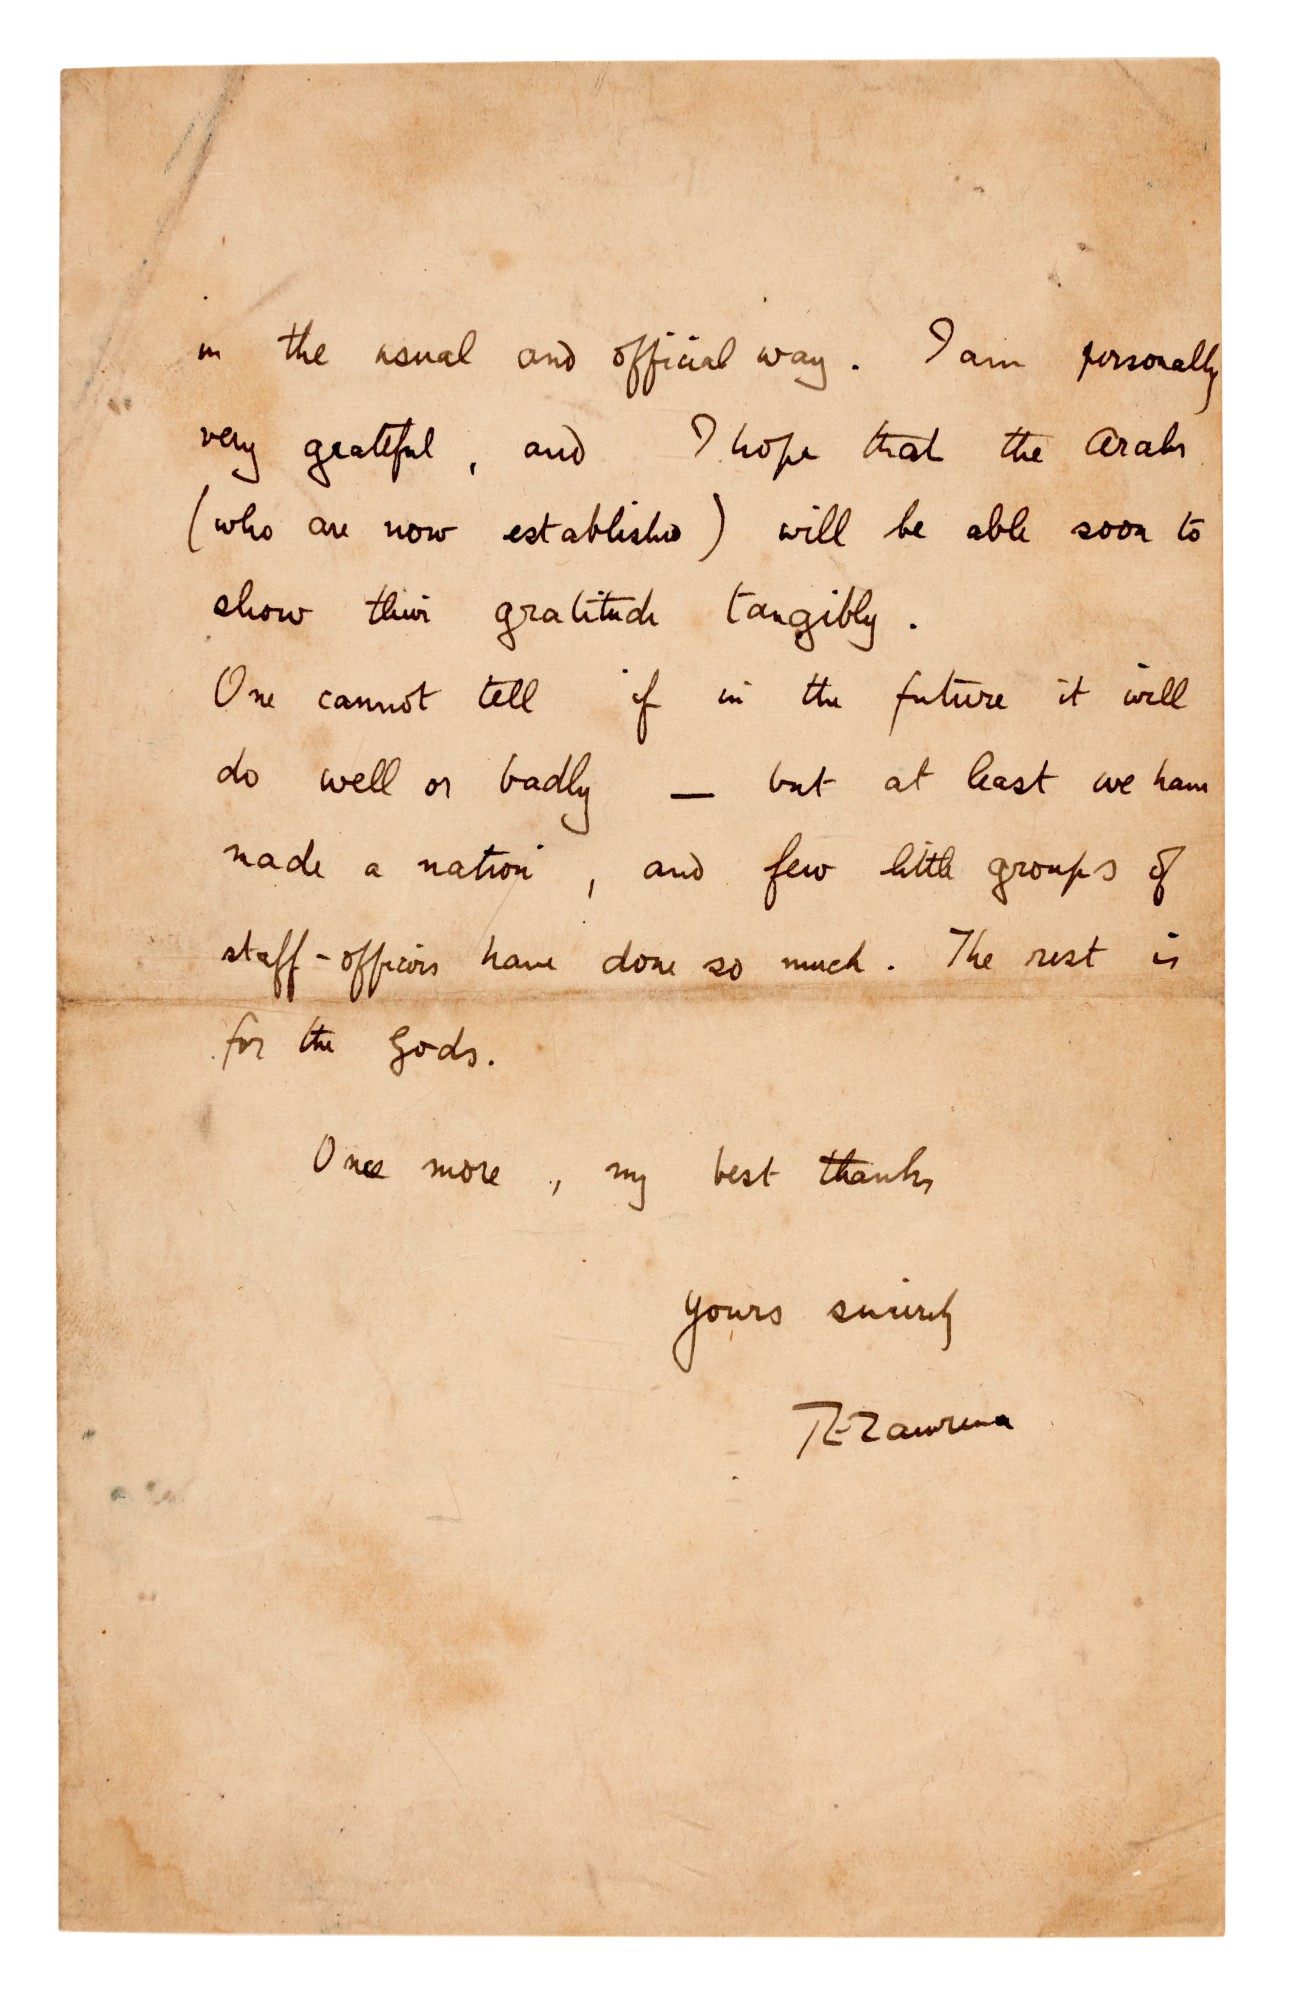 in the usual and official way. I am personally
very grateful, and I hope that the Arabs
(who are now established) will be able soon to
show their gratitude tangibly.
One cannot tell if in the future it will
do well or badly — but at least we have
made a nation, and few little groups of
staff-officers have done so much. The rest is
for the Gods.
Once more, my best thanks
Yours sincerely
TE Lawrence